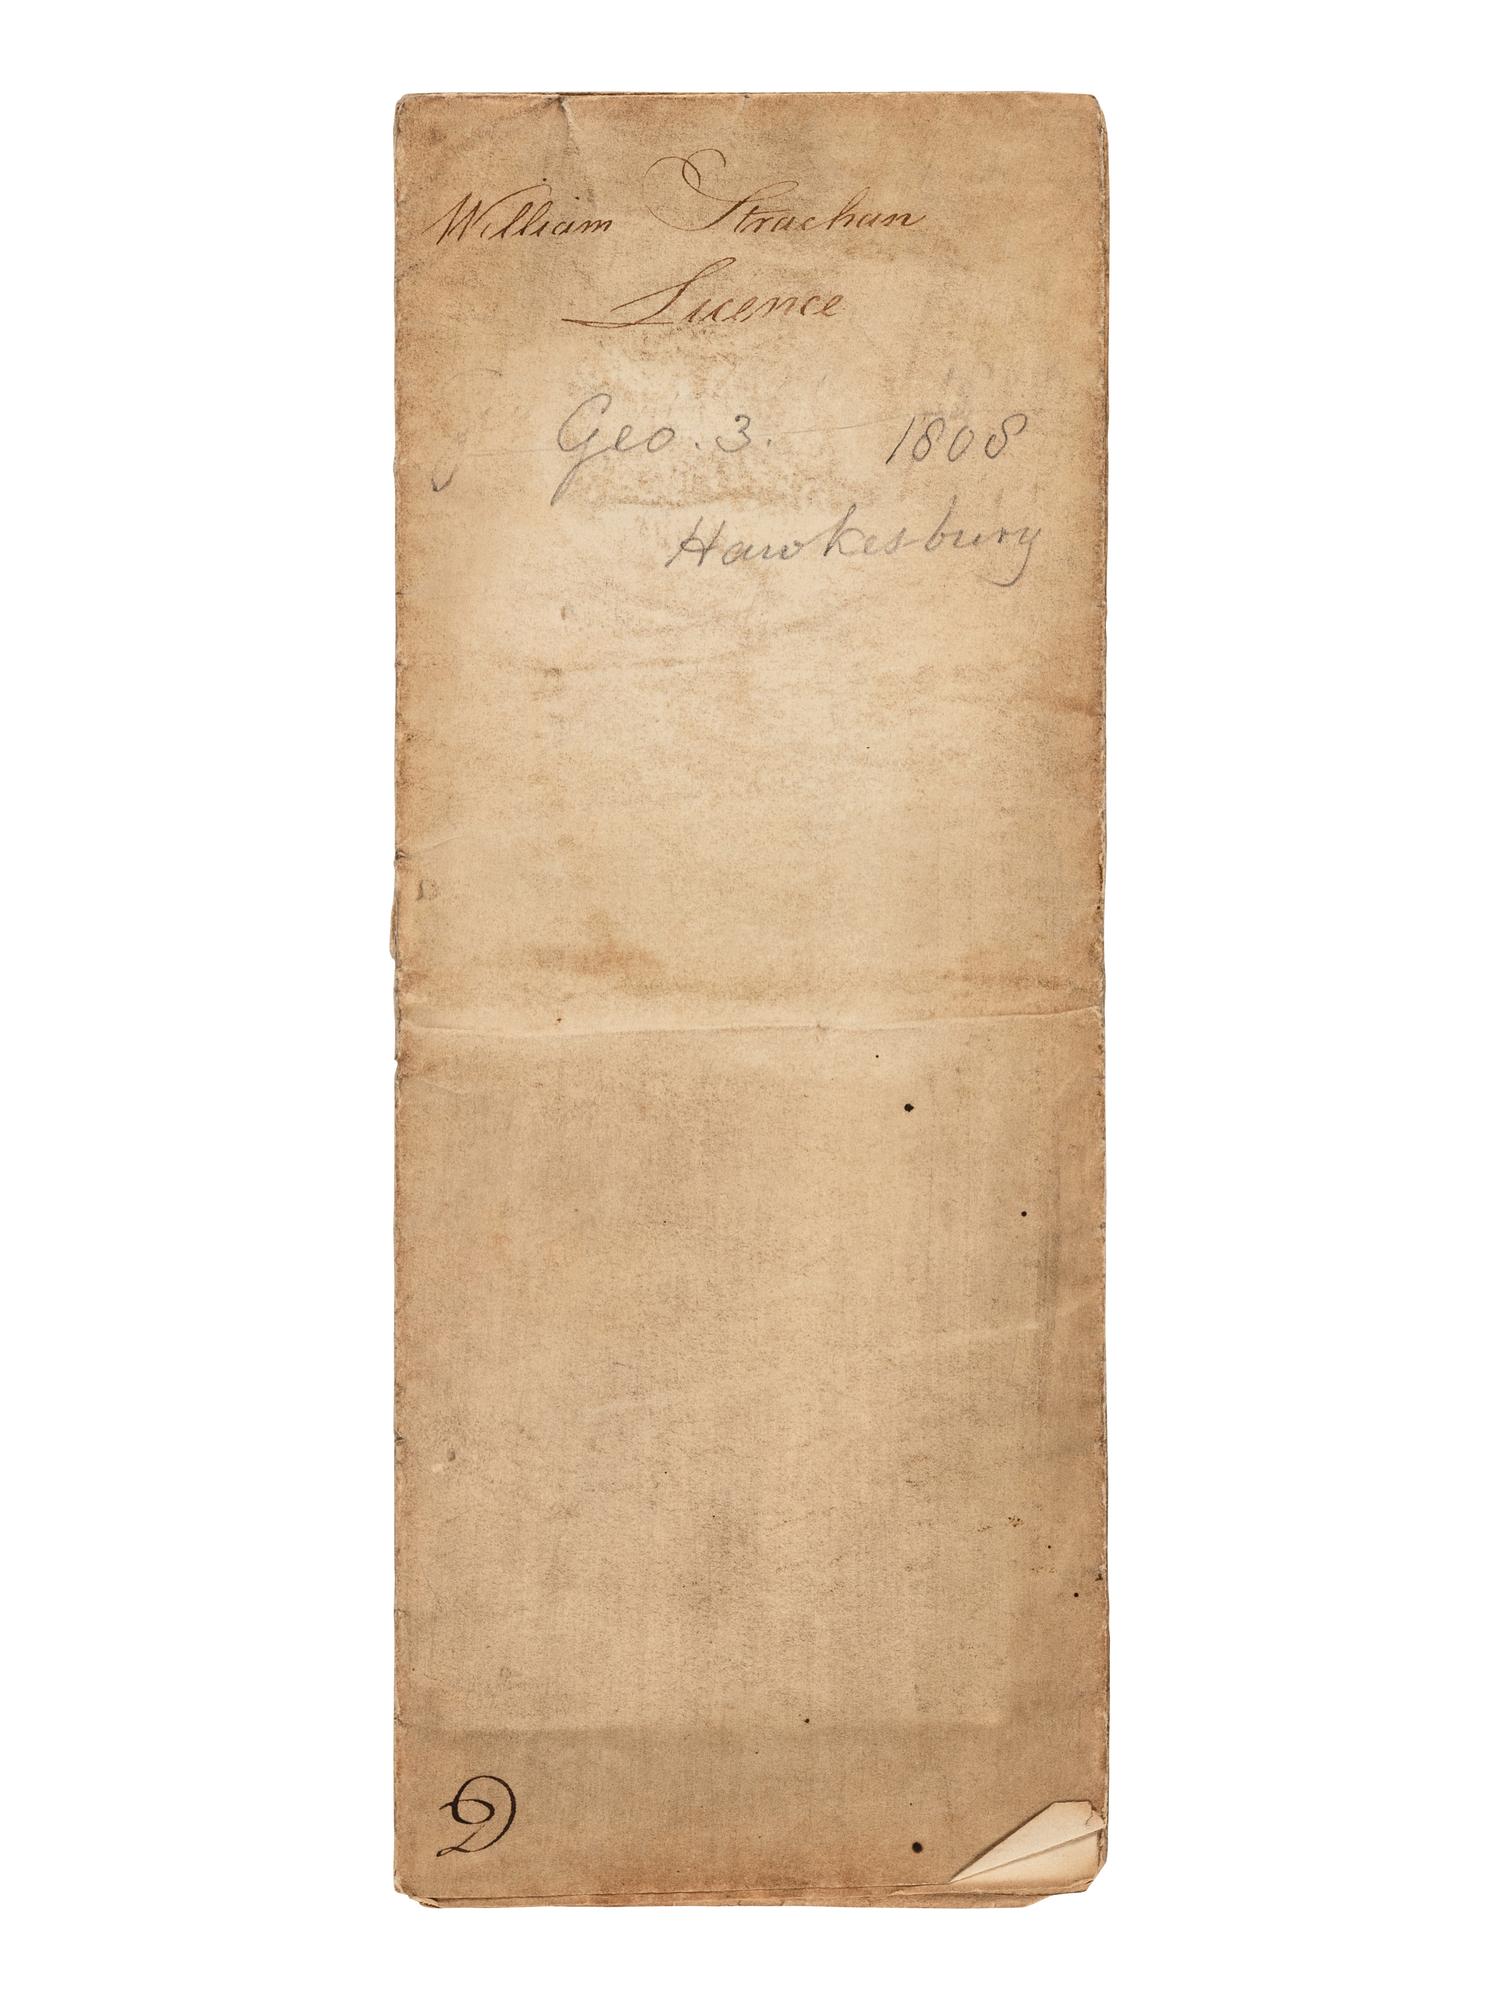 William Strachan
Licence
Geo. 3. 1808
Hawkesbury
D